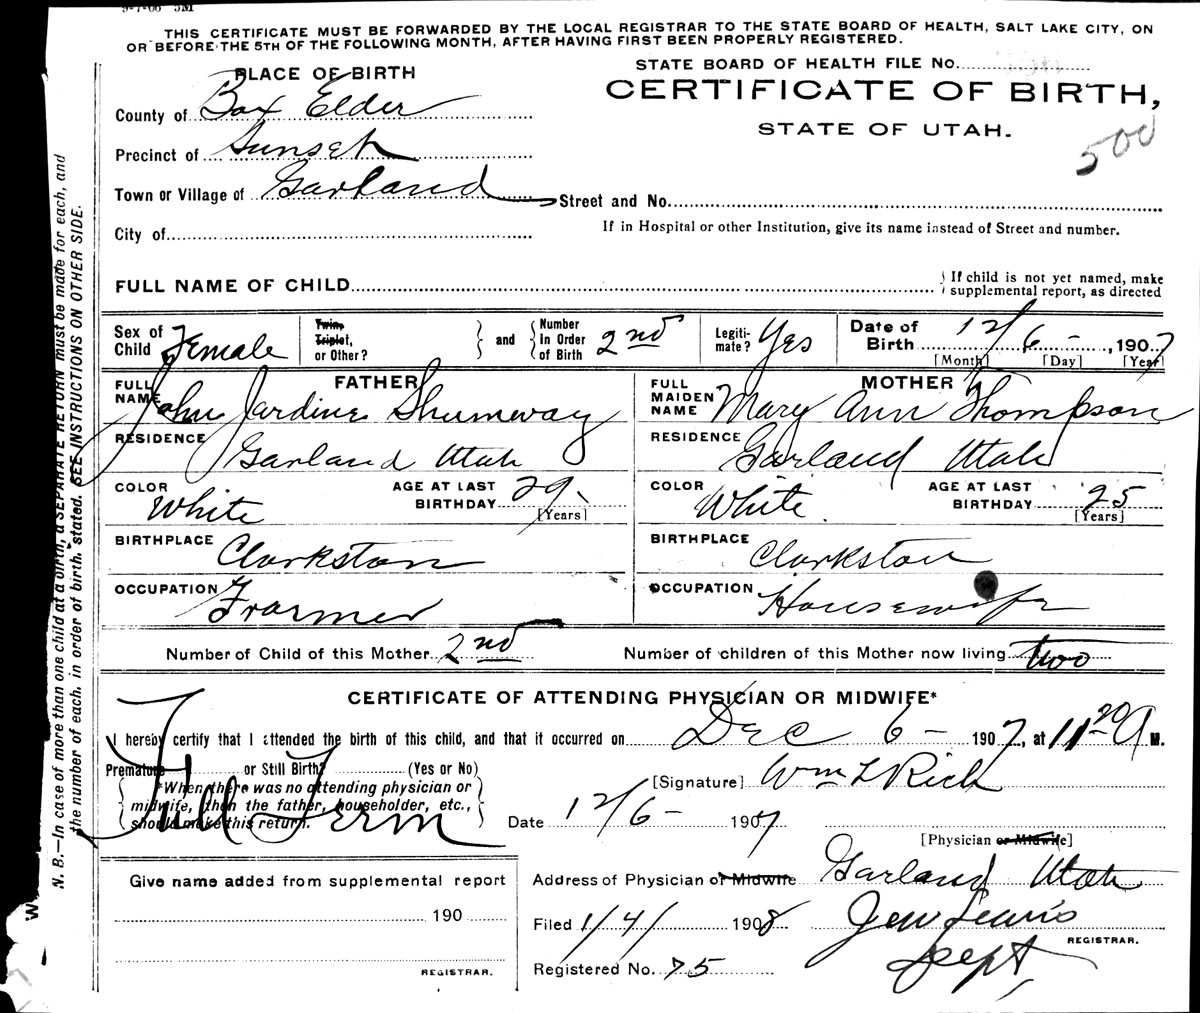 9-7-06 5M
THIS CERTIFICATE MUST BE FORWARDED BY THE LOCAL REGISTRAR TO THE STATE BOARD OF HEALTH, SALT LAKE CITY, ON
OR BEFORE THE 5TH OF THE FOLLOWING MONTH, AFTER HAVING FIRST BEEN PROPERLY REGISTERED.
PLACE OF BIRTH
STATE BOARD OF HEALTH FILE No.
CERTIFICATE OF BIRTH,
STATE OF UTAH.
500
County of Box Elder
Precinct of Sunset
Town or Village of Garland
Street and No.
City of
If in Hospital or other Institution, give its name instead of Street and number.
FULL NAME OF CHILD
If child is not yet named, make supplemental report, as directed
Sex of Child Female
Twin, Triplet, or Other? and Number In Order of Birth 2nd
Legitimate? Yes
Date of Birth 12/6-, 1907
[Month] [Day] [Year]
FATHER
FULL NAME John Jardine Shumway
RESIDENCE Garland Utah
COLOR White AGE AT LAST BIRTHDAY 29 [Years]
BIRTHPLACE Clarkston
OCCUPATION Frarmer
MOTHER
FULL MAIDEN NAME Mary Ann Thompson
RESIDENCE Garland Utah
COLOR White AGE AT LAST BIRTHDAY 25 [Years]
BIRTHPLACE Clarkston
OCCUPATION Housewife
Number of Child of this Mother 2nd Number of children of this Mother now living two
CERTIFICATE OF ATTENDING PHYSICIAN OR MIDWIFE*
I hereby certify that I attended the birth of this child, and that it occurred on Dec 6- 1907, at 11 20 A M.
Premature or Still Birth? (Yes or No)
Full Term
*When there was no attending physician or
midwife, then the father, householder, etc.,
should make this return.
[Signature] Wm L Rich
Date 12/6- 1907
[Physician or Midwife]
Give name added from supplemental report
190
REGISTRAR.
Address of Physician or Midwife Garland Utah
Filed 1/4/ 1908 Jew Lewis
REGISTRAR.
Registered No. 75 Dept
N. B.—In case of more than one child at a birth, a SEPARATE RETURN must be made for each, and
the number of each, in order of birth, stated. SEE INSTRUCTIONS ON OTHER SIDE.